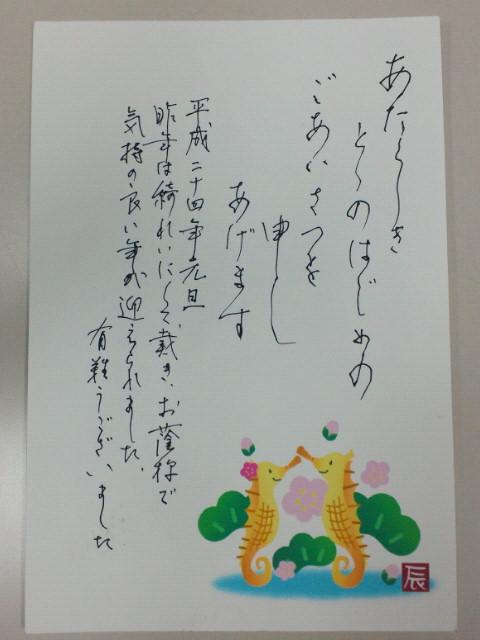 あたらしき
としのはじめの
ごあいさつを
申し
あげます
平成二十四年元旦
昨年は綺れいにして戴き、お蔭様で
気持の良い年が迎えられました。
有難うございました
辰